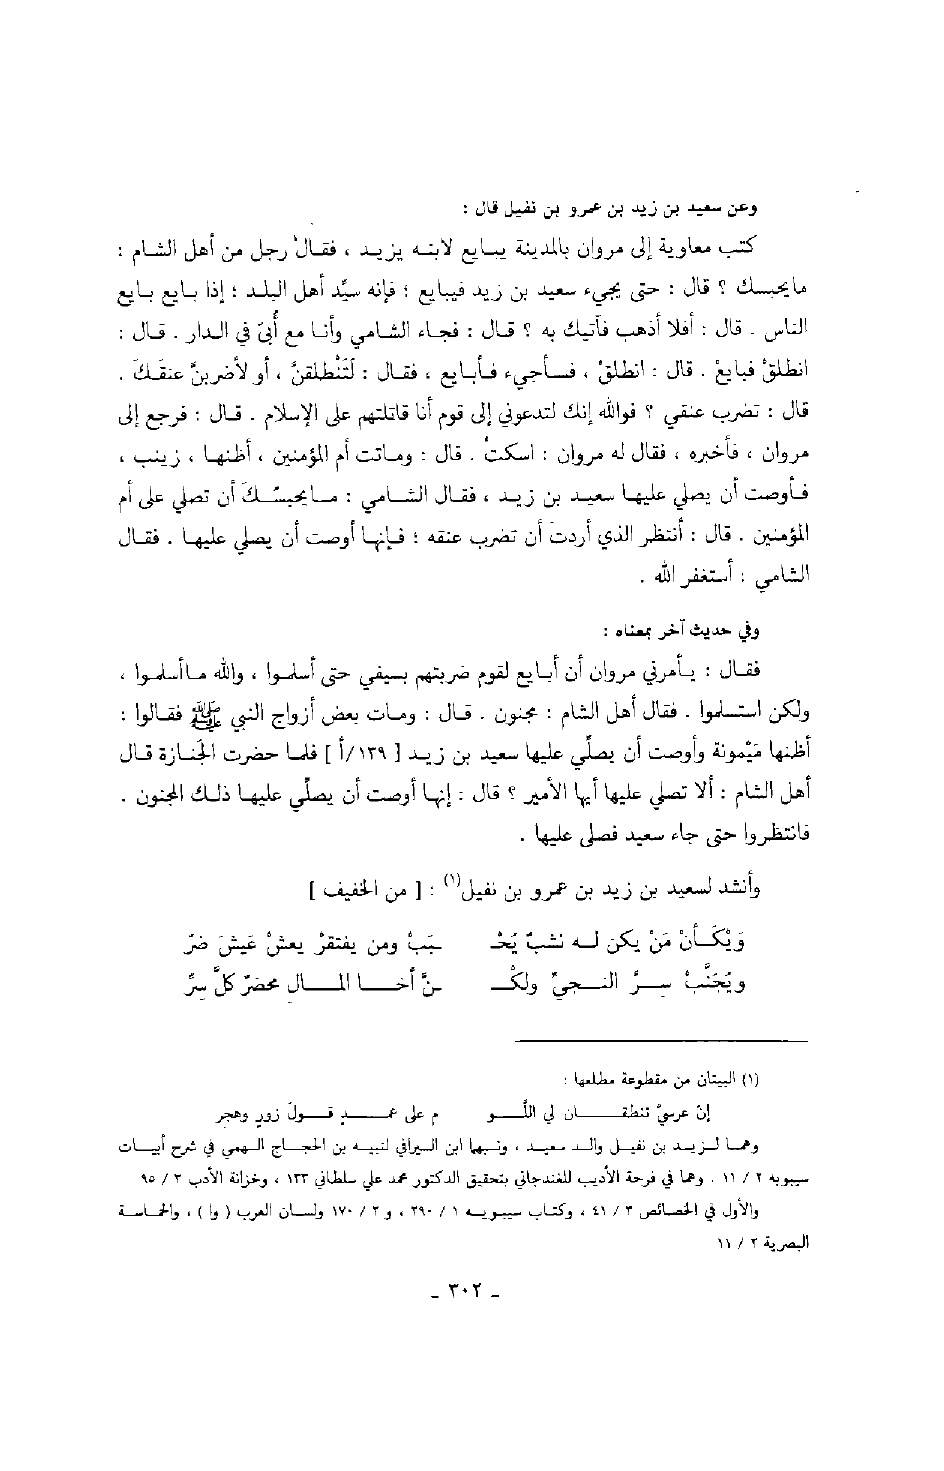 وعن سعيد بن زيد بن عمرو بن نفيل قال :
كتب معاوية إلى مروان بالمدينة يبايع لابنه يزيد ، فقال رجل من أهل الشام :
ما يحبسك ؟ قال : حتى يجيء سعيد بن زيد فيبايع ؛ فإنه سيّد أهل البلد ؛ إذا بايع بايع
الناس . قال : أفلا أذهب فآتيك به ؟ قال : فجاء الشامي وأنا مع أُبيّ في الدار . قال :
انطلقْ فبايعْ . قال : انطلقْ ، فسأجيء فأبايع ، فقال : لَتَنْطلقنّ ، أو لأضربنّ عنقكَ .
قال : تضرب عنقي ؟ فوالله إنك لتدعوني إلى قوم أنا قاتلتهم على الإسلام . قال : فرجع إلى
مروان ، فأخبره ، فقال له مروان : اسكتْ . قال : وماتت أم المؤمنين ، أظنها ، زينب ،
فأوصت أن يصلي عليها سعيد بن زيد ، فقال الشامي : ما يحبسُكَ أن تصلي على أم
المؤمنين . قال : أنتظر الذي أردتَ أن تضرب عنقه ؛ فإنها أوصت أن يصلي عليها . فقال
الشامي : أستغفر الله .
وفي حديث آخر بمعناه :
فقال : يأمرني مروان أن أبايع لقوم ضربتهم بسيفي حتى أسلموا ، والله ما أسلموا ،
ولكن استسلموا . فقال أهل الشام : مجنون . قال : ومات بعض أزواج النبي ﷺ فقالوا :
أظنها مَيْمونة وأوصت أن يصلّي عليها سعيد بن زيد [ ١٣٩/أ ] فلما حضرت الجنازة قال
أهل الشام : ألا تصلي عليها أيها الأمير ؟ قال : إنها أوصت أن يصلّي عليها ذلك المجنون .
فانتظروا حتى جاء سعيد فصلى عليها .
وأنشد لسعيد بن زيد بن عمرو بن نفيل(١) : [ من الخفيف ]
وَيْكَأنْ مَنْ يكن له نشبٌ يُحْـ ـبَبْ ومن يفتقرْ يعشْ عَيْشَ ضَرّ
ويُجَنَّبْ سرَّ النجيّ ولكـ ـنّ أخا المال محضَرٌ كلَّ سرِّ
(١) البيتان من مقطوعة مطلعها :
إنّ عرسيَّ تنطقان لي اللّو م على عمدٍ قولَ زورٍ وهجر
وهما لزيد بن نفيل والد سعيد ، ونسبها ابن السيرافي لنبيه بن الحجاج السهمي في شرح أبيات
سيبويه ٢ / ١١ . وهما في فرحة الأديب للغندجاني بتحقيق الدكتور محمد علي سلطاني ١٣٣ ، وخزانة الأدب ٣ / ٩٥
والأول في الخصائص ٣ / ٤١ ، وكتاب سيبويه ١ / ٢٩٠ ، و ٢ / ١٧٠ ولسان العرب ( وا ) ، والحماسة
البصرية ٢ / ١١
ـ ٣٠٢ ـ